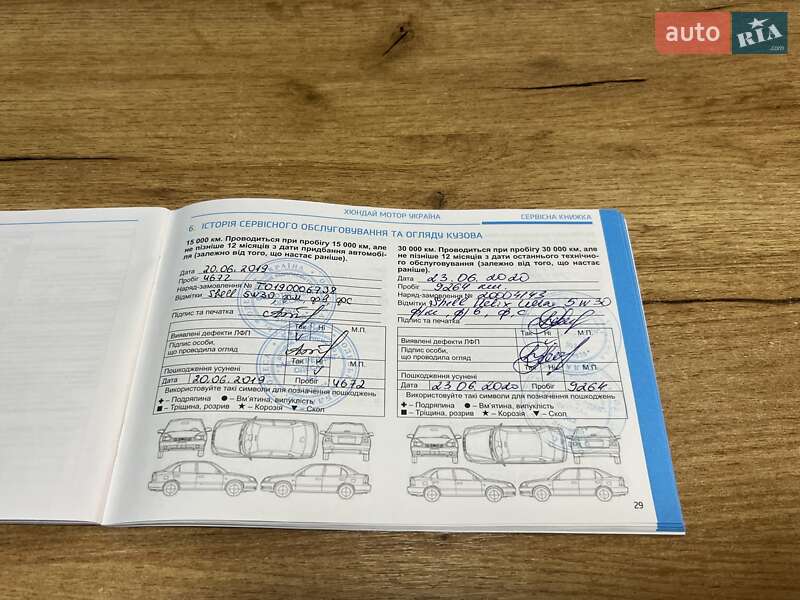 auto RIA .com
ХЮНДАЙ МОТОР УКРАЇНА
СЕРВІСНА КНИЖКА
6. ІСТОРІЯ СЕРВІСНОГО ОБСЛУГОВУВАННЯ ТА ОГЛЯДУ КУЗОВА
15 000 км. Проводиться при пробігу 15 000 км, але
не пізніше 12 місяців з дати придбання автомобі-
ля (залежно від того, що настає раніше).
Дата 20.06.2019
Пробіг 4672
Наряд-замовлення № T0190006738
Відмітки Shell 5W30 ф.м ф.в фс
Підпис та печатка
Так Ні
Виявлені дефекти ЛФП М.П.
Підпис особи,
що проводила огляд
Так Ні
Пошкодження усунені М.П.
Дата 20.06.2019 Пробіг 4672
Використовуйте такі символи для позначення пошкоджень
Подряпина Вм'ятина, випуклість
Тріщина, розрив Корозія Скол
30 000 км. Проводиться при пробігу 30 000 км, але
не пізніше 12 місяців з дати останнього технічно-
го обслуговування (залежно від того, що настає
раніше).
Дата 23.06.2020
Пробіг 9264 км
Наряд-замовлення № 20004143
Відмітки Shell Helix Ultra 5W30
ф/м, ф/в, ф.с
Підпис та печатка
Так Ні
Виявлені дефекти ЛФП М.П.
Підпис особи,
що проводила огляд
Так Ні
Пошкодження усунені М.П.
Дата 23.06.2020 Пробіг 9264
Використовуйте такі символи для позначення пошкоджень
Подряпина Вм'ятина, випуклість
Тріщина, розрив Корозія Скол
29